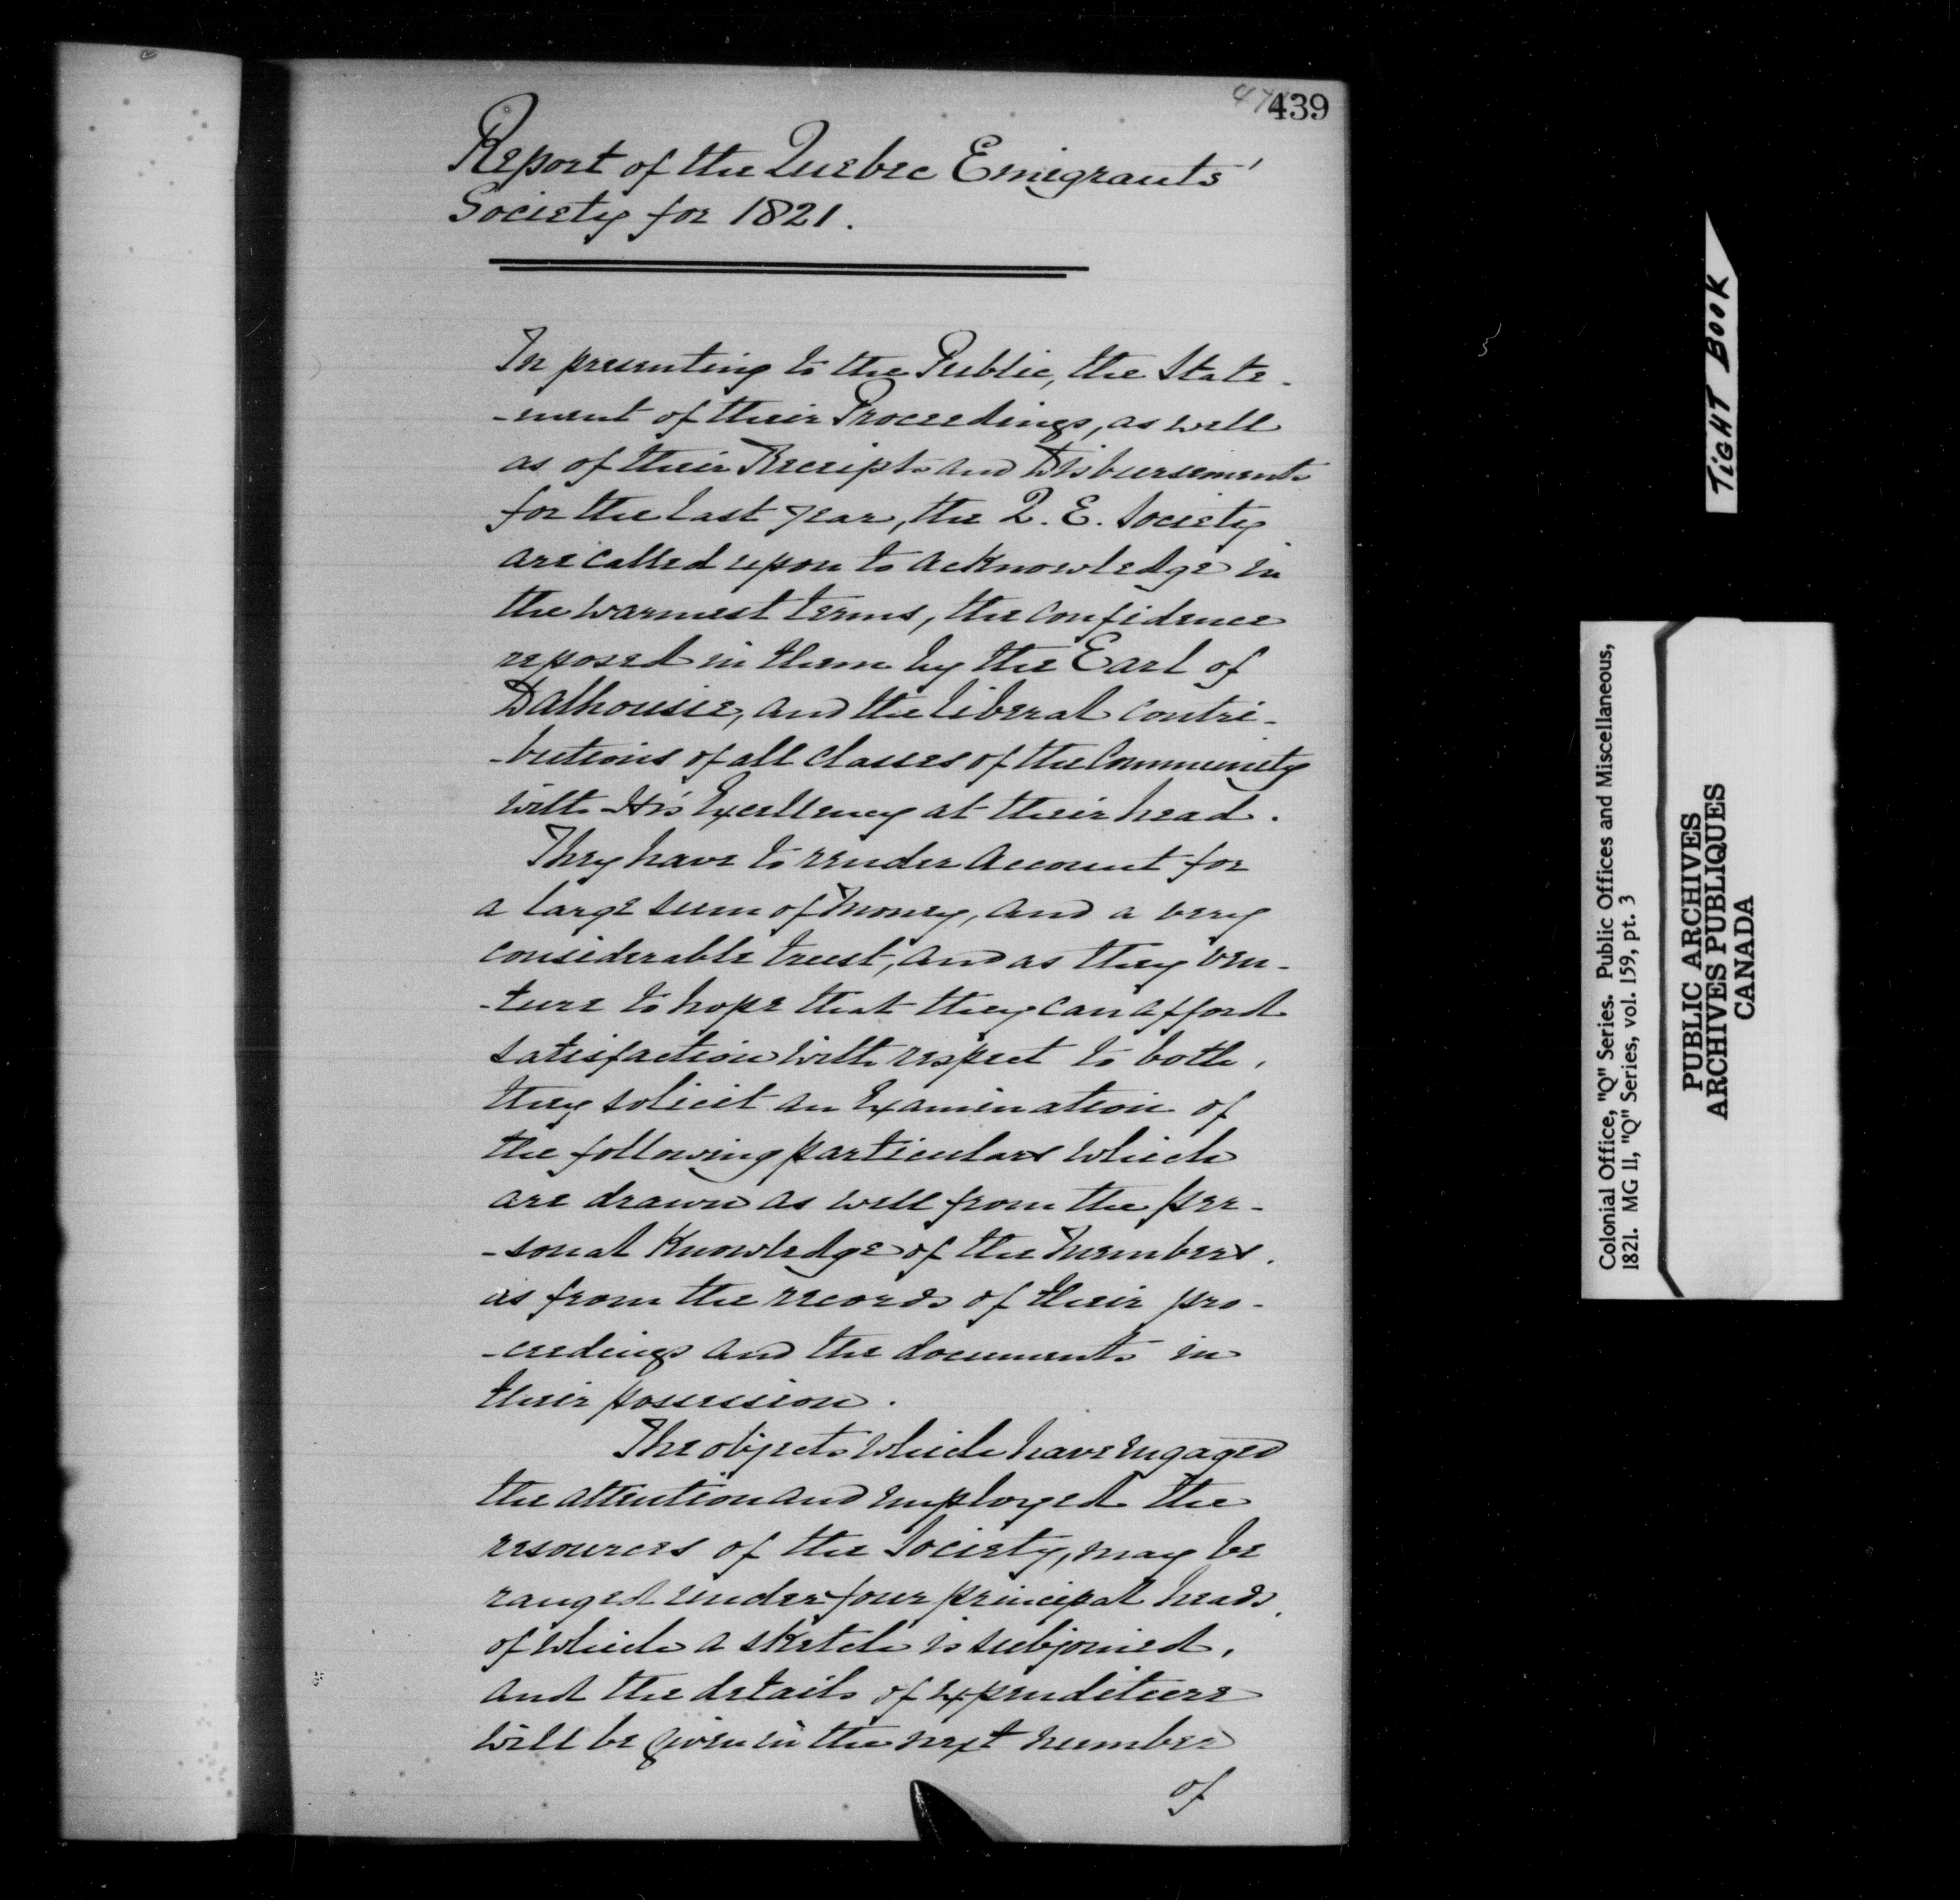 439
Report of the Quebec Emigrants'
Society for 1821.
In presenting to the Public, the State-
-ment of their Proceedings, as well
as of their Receipts and Disbursements
for the last year, the Q. E. Society
are called upon to acknowledge in
the warmest terms, the confidence
reposed in them by the Earl of
Dalhousie, and the liberal contri-
-butions of all classes of the Community
with His Excellency at their head.
They have to render account for
a large sum of money, and a very
considerable trust, and as they ven-
-ture to hope that they can afford
satisfaction with respect to both,
they solicit an examination of
the following particulars which
are drawn as well from the per-
-sonal knowledge of the members,
as from the records of their pro-
-ceedings and the documents in
their possession.
The objects which have engaged
the attention and employed the
resources of the Society, may be
ranged under four principal heads,
of which a sketch is subjoined,
and the details of expenditure
will be given in the next number
of
TIGHT BOOK
Colonial Office, "Q" Series. Public Offices and Miscellaneous,
1821. MG 11, "Q" Series, vol. 159, pt. 3
PUBLIC ARCHIVES
ARCHIVES PUBLIQUES
CANADA